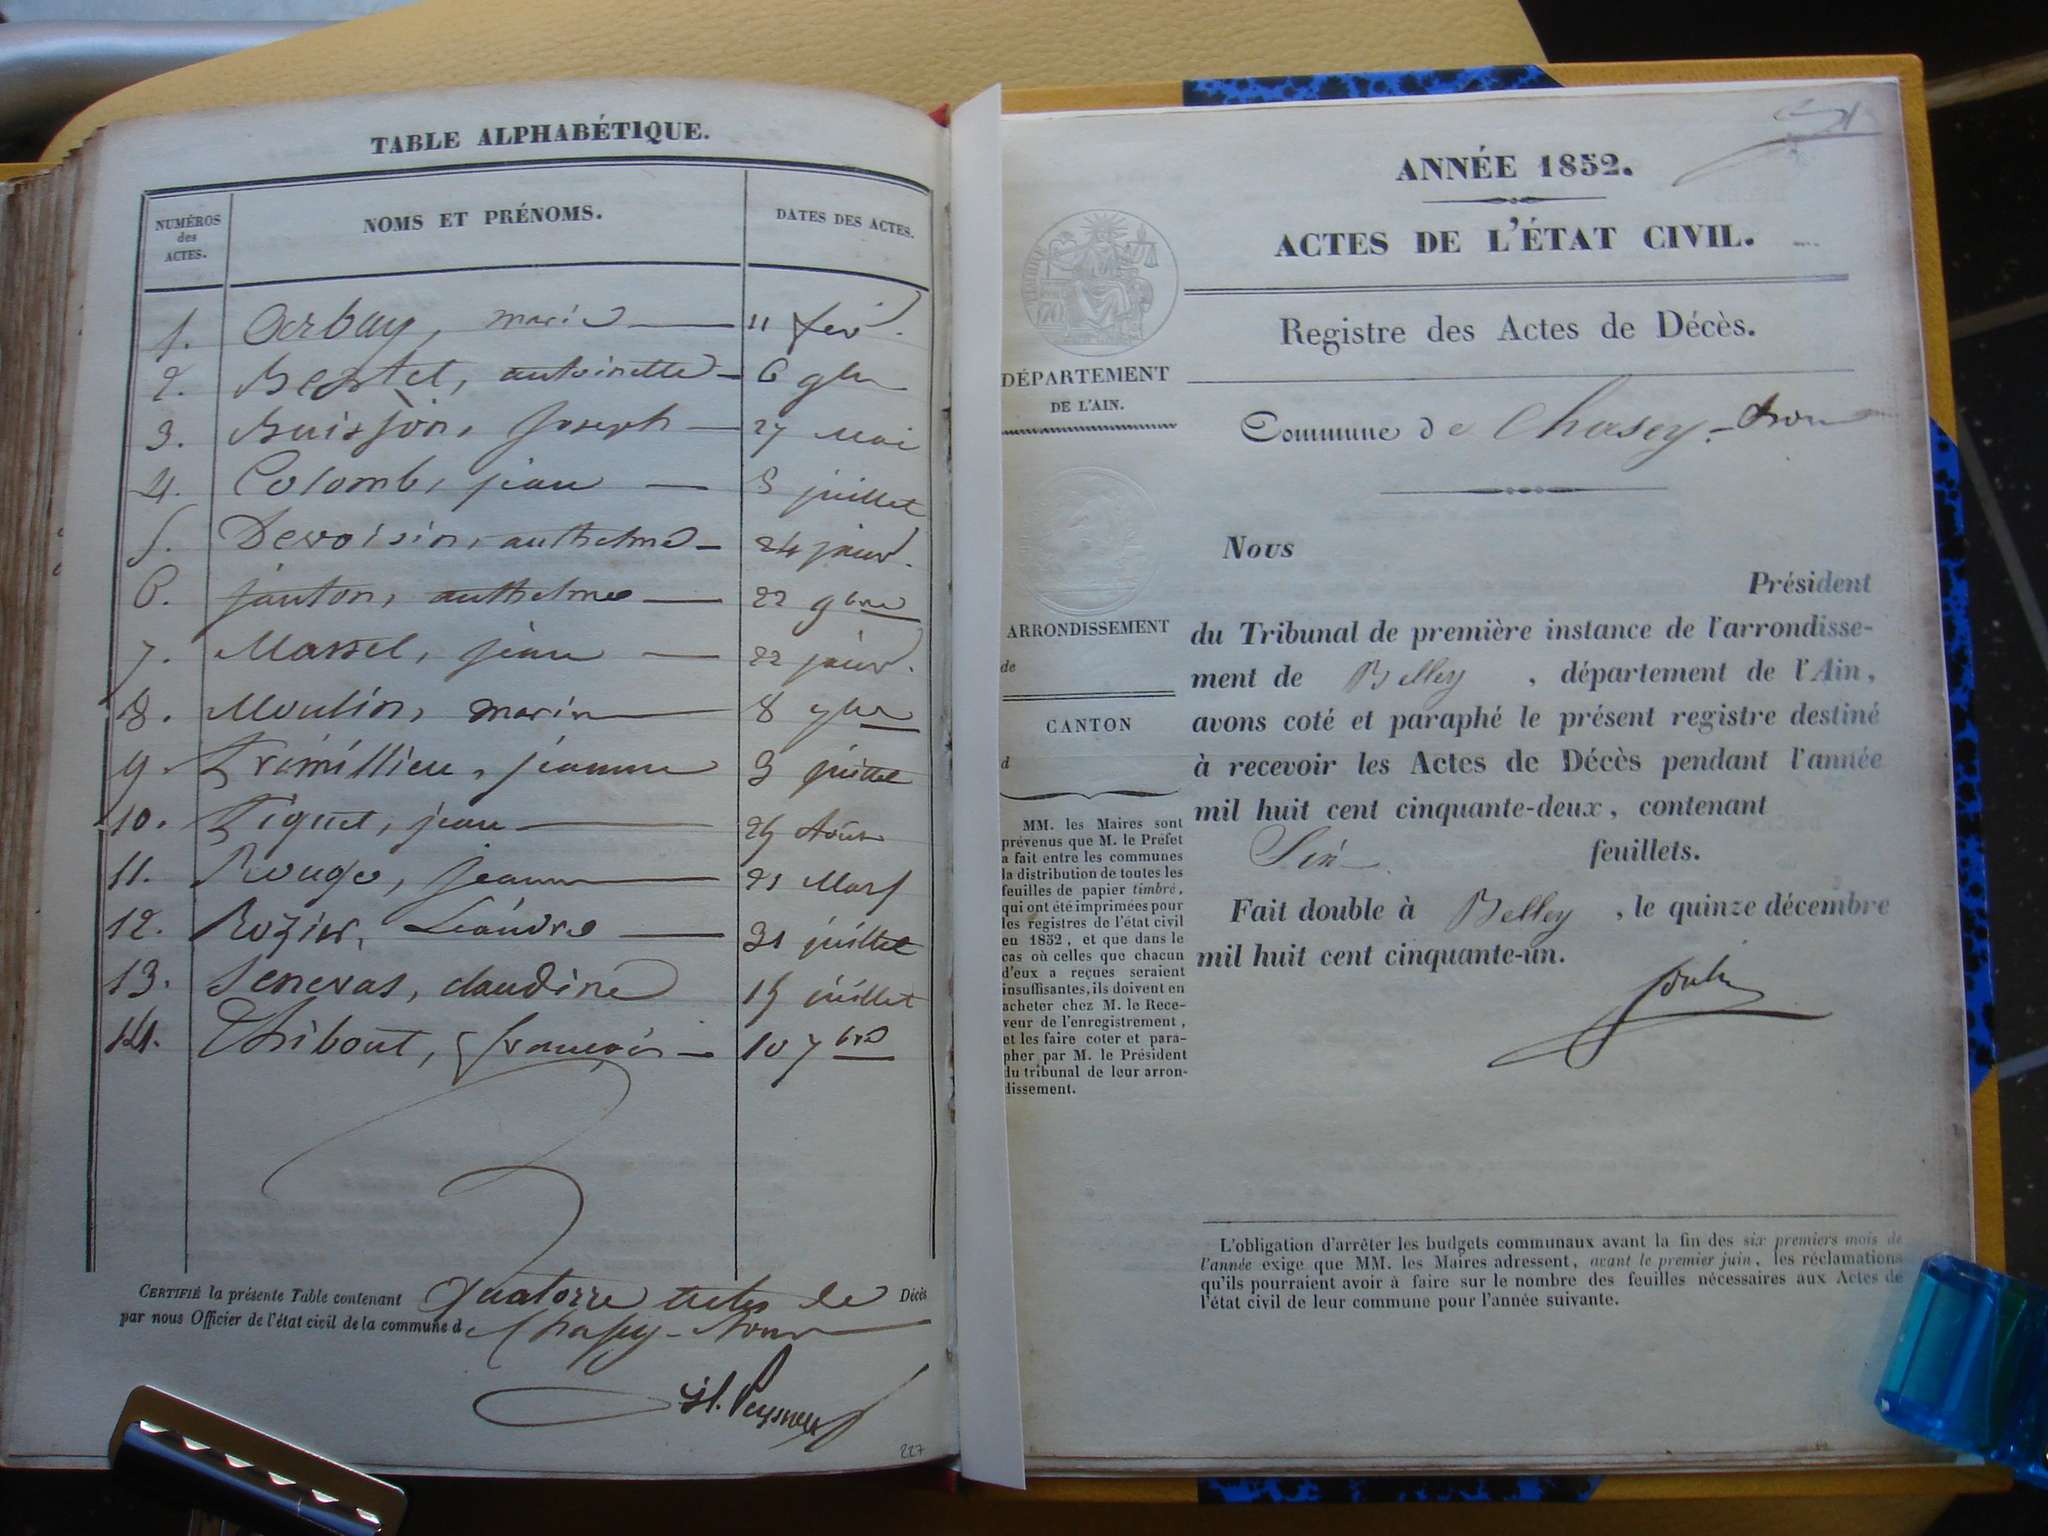 TABLE ALPHABÉTIQUE.
NUMÉROS des ACTES. NOMS ET PRÉNOMS. DATES DES ACTES.
1. marie 11 fév.
2. antoinette 6 9bre
3. Buisson, Joseph 27 Mai
4. Colomb, jean juillet
5. Devoisin, anthelme 24 janv.
6. janton, anthelme 22 9bre
7. Massel, jean 22 janv.
8. Moulin, marie 8 9bre
9. jeanne 3 juillet
10. jean 25 Août
11. Rouge, jeanne 21 Mars
12. Rozier, Léandre 31 juillet
13. Senevas, claudine 15 juillet
14. Thibout, françois 10 7bre
CERTIFIÉ la présente Table contenant quatorze actes de Décès
par nous Officier de l'état civil de la commune d Chasey-
227
ANNÉE 1852.
ACTES DE L'ÉTAT CIVIL.
Registre des Actes de Décès.
DÉPARTEMENT
DE L'AIN.
Commune de Chasey-
ARRONDISSEMENT
de
CANTON
d
MM. les Maires sont
prévenus que M. le Préfet
a fait entre les communes
la distribution de toutes les
feuilles de papier timbré,
qui ont été imprimées pour
les registres de l'état civil
en 1852, et que dans le
cas où celles que chacun
d'eux a reçues seraient
insuffisantes, ils doivent en
acheter chez M. le Rece-
veur de l'enregistrement,
et les faire coter et para-
pher par M. le Président
du tribunal de leur arron-
dissement.
Nous
Président
du Tribunal de première instance de l'arrondisse-
ment de Belley, département de l'Ain,
avons coté et paraphé le présent registre destiné
à recevoir les Actes de Décès pendant l'année
mil huit cent cinquante-deux, contenant
feuillets.
Fait double à Belley, le quinze décembre
mil huit cent cinquante-un.
L'obligation d'arrêter les budgets communaux avant la fin des six premiers mois de
l'année exige que MM. les Maires adressent, avant le premier juin, les réclamations
qu'ils pourraient avoir à faire sur le nombre des feuilles nécessaires aux Actes de
l'état civil de leur commune pour l'année suivante.